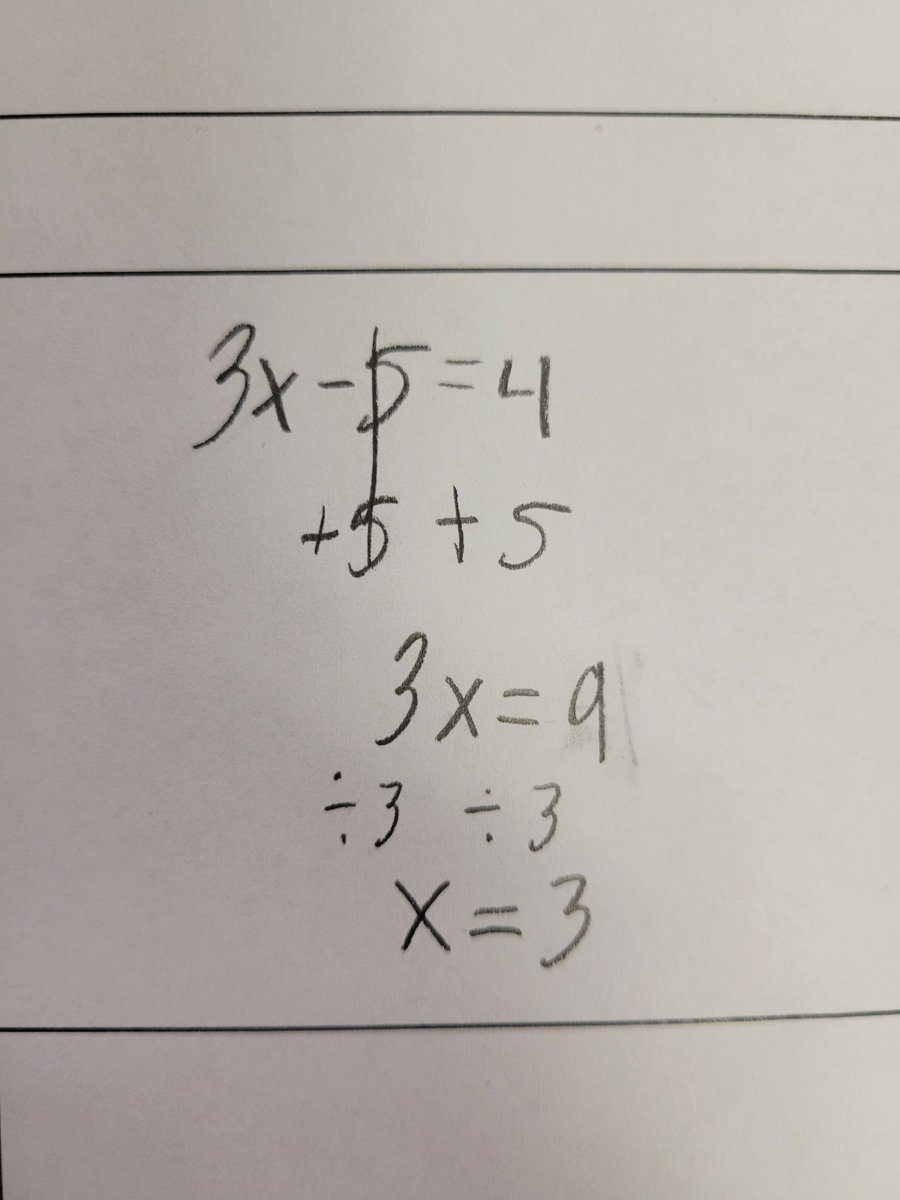 3x-5=4
+5 +5
3x=9
÷3 ÷3
x=3